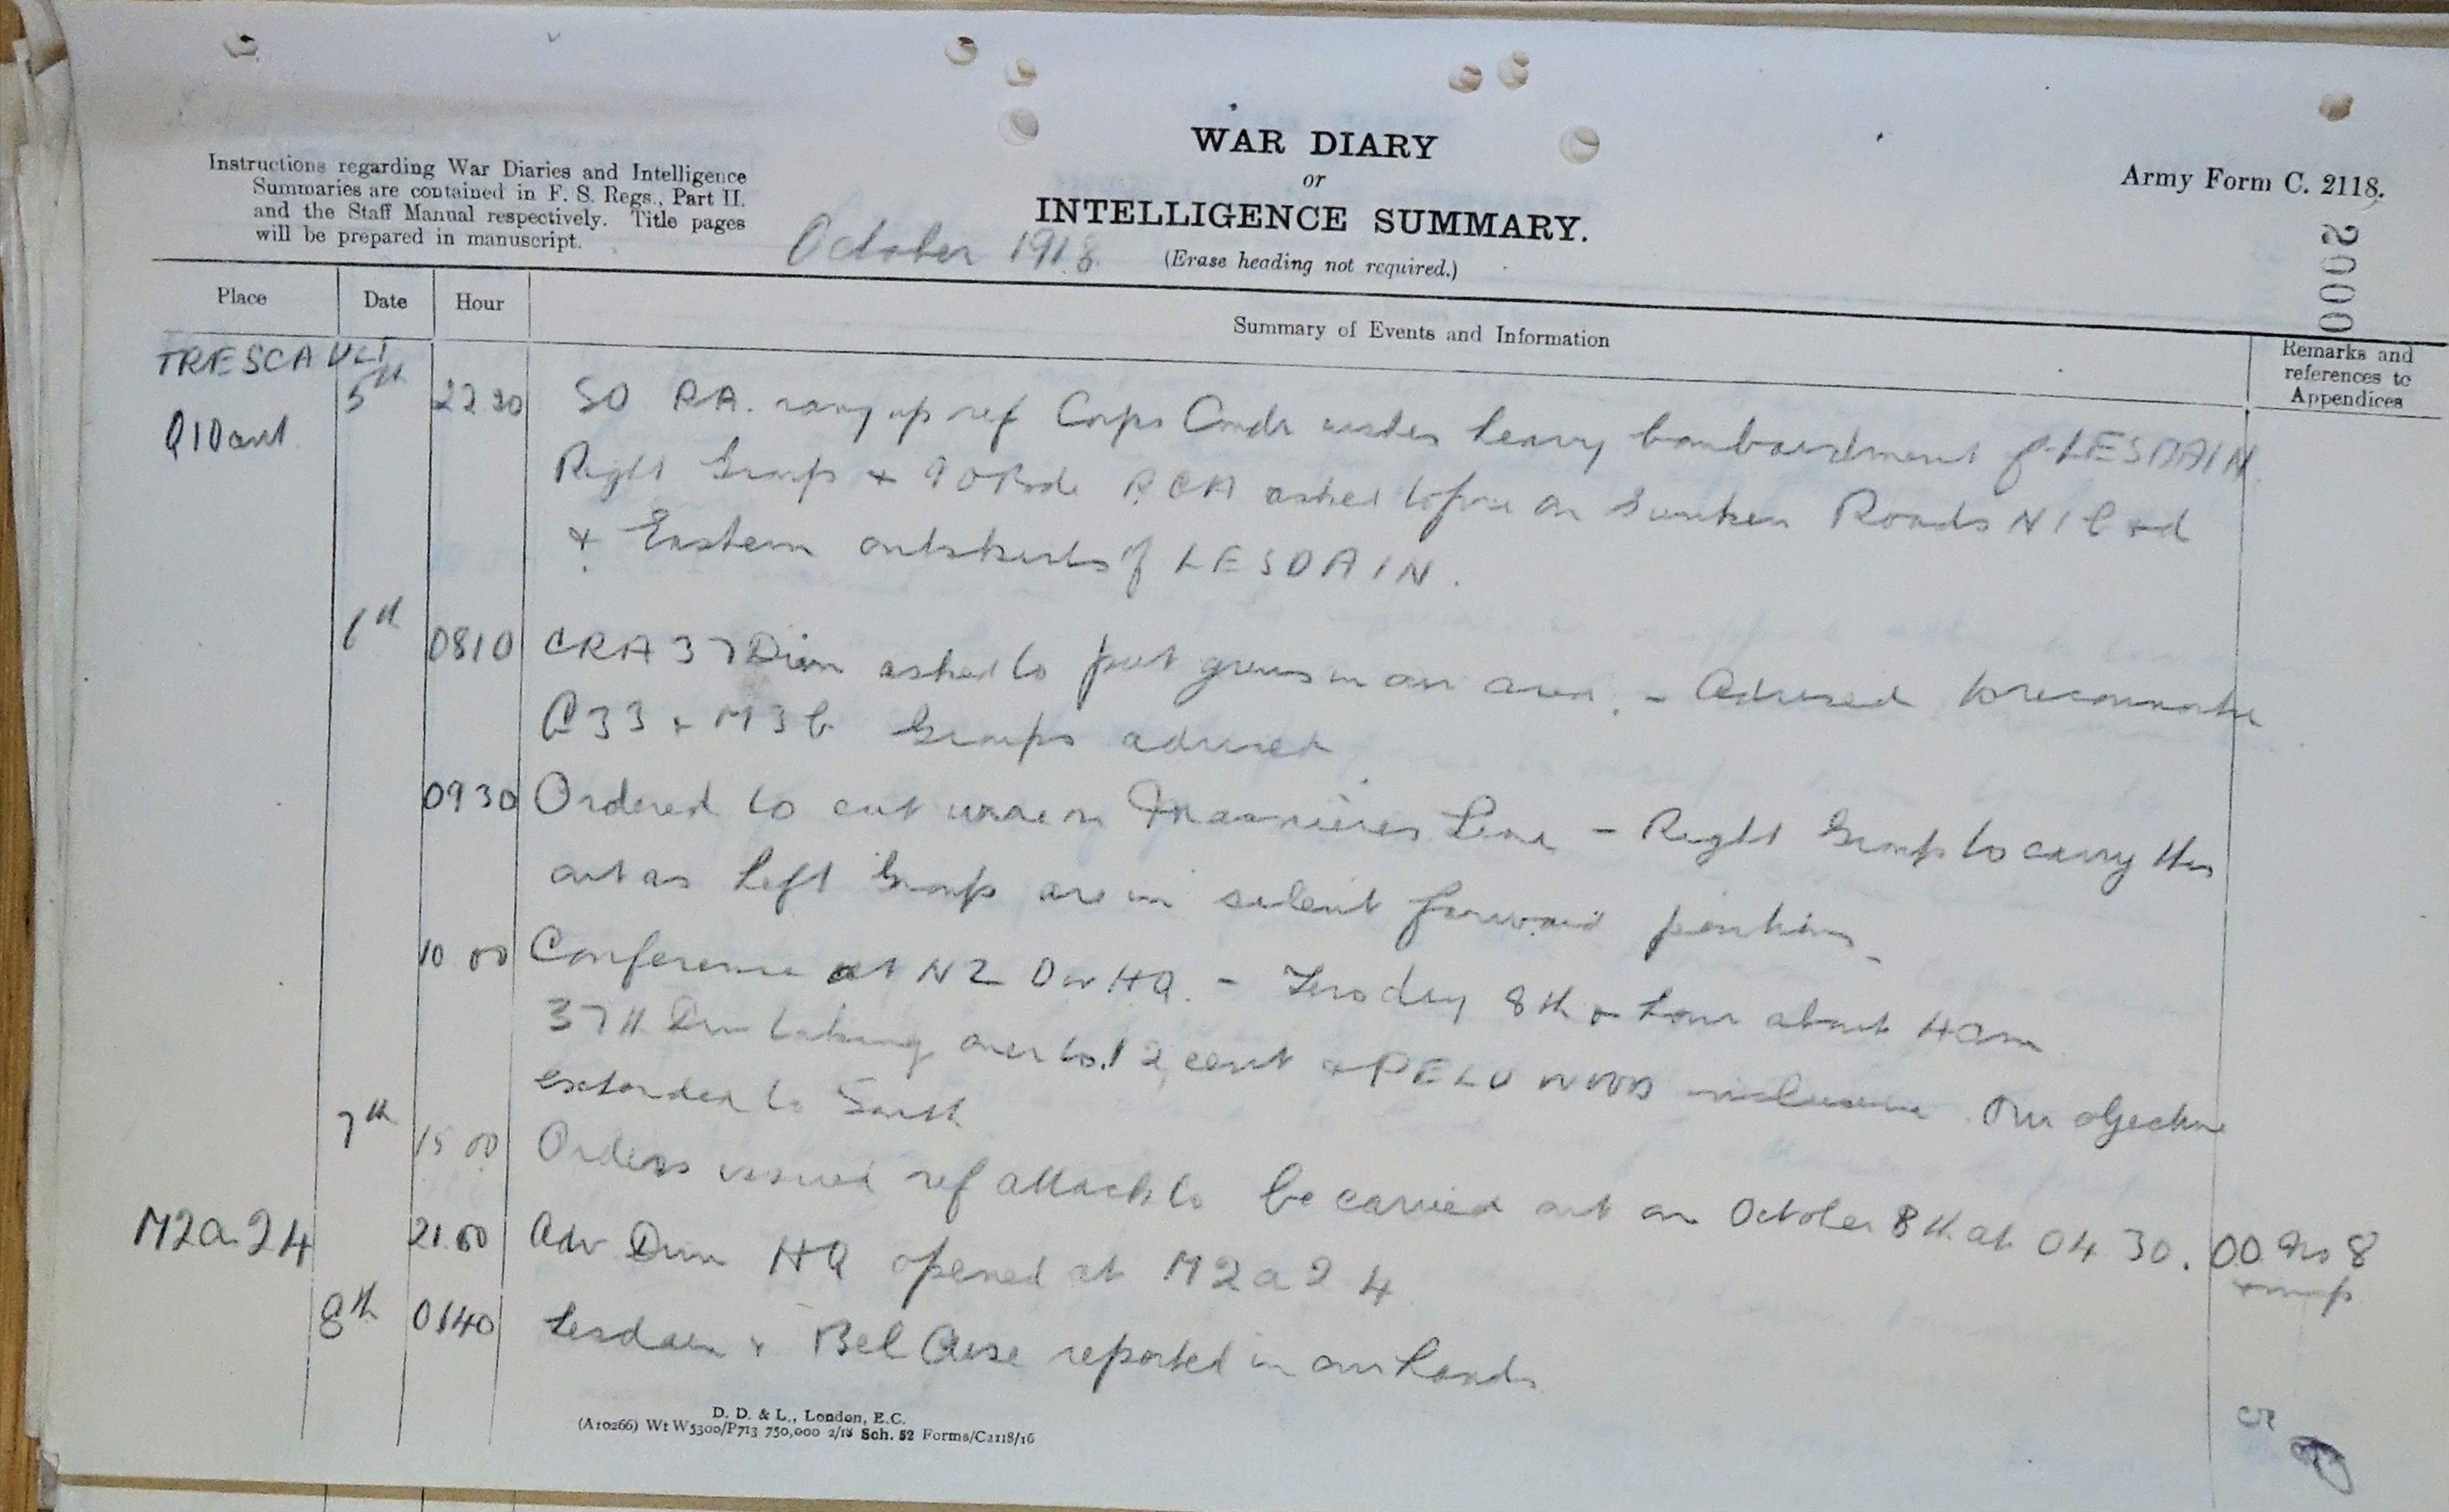 WAR DIARY
or
INTELLIGENCE SUMMARY.
(Erase heading not required.)
Instructions regarding War Diaries and Intelligence
Summaries are contained in F. S. Regs., Part II.
and the Staff Manual respectively. Title pages
will be prepared in manuscript.
October 1918
Army Form C. 2118.
00002
Place Date Hour Summary of Events and Information Remarks and
references to
Appendices
TRESCAULT 5th 22 30 SO RA. rang up ref Corps Comdr wishes heavy bombardment of LESDAIN.
Q10 Right Group + 90 Bde asked to fire on Sunken Roads N1b+d
+ Eastern outskirts of LESDAIN.
6th 0810 CRA 37 Divn asked to put guns in our area. - Advised to reconnoitre
G33 + M3b Groups advised
0930 Ordered to cut wire on Masnieres Line - Right Group to carry this
out as Left Group are in silent forward positions -
10 00 Conference at NZ Div HQ. - Zero day 8th + hour about 4 am
37th Div taking over to 12 cent + PELU WOOD inclusive. Our objective
extended to South
7th 15 00 Orders issued ref attack to be carried out on October 8th at 04 30. OO No 8
+ map
M2a.24 21.00 Adv Divn HQ opened at M2a24
8th 0140 Lesdain + Bel Aise reported in our hands
D. D. & L., London, E.C.
(A10266) Wt W5300/P713 750,000 2/18 Sch. 52 Forms/C2118/16